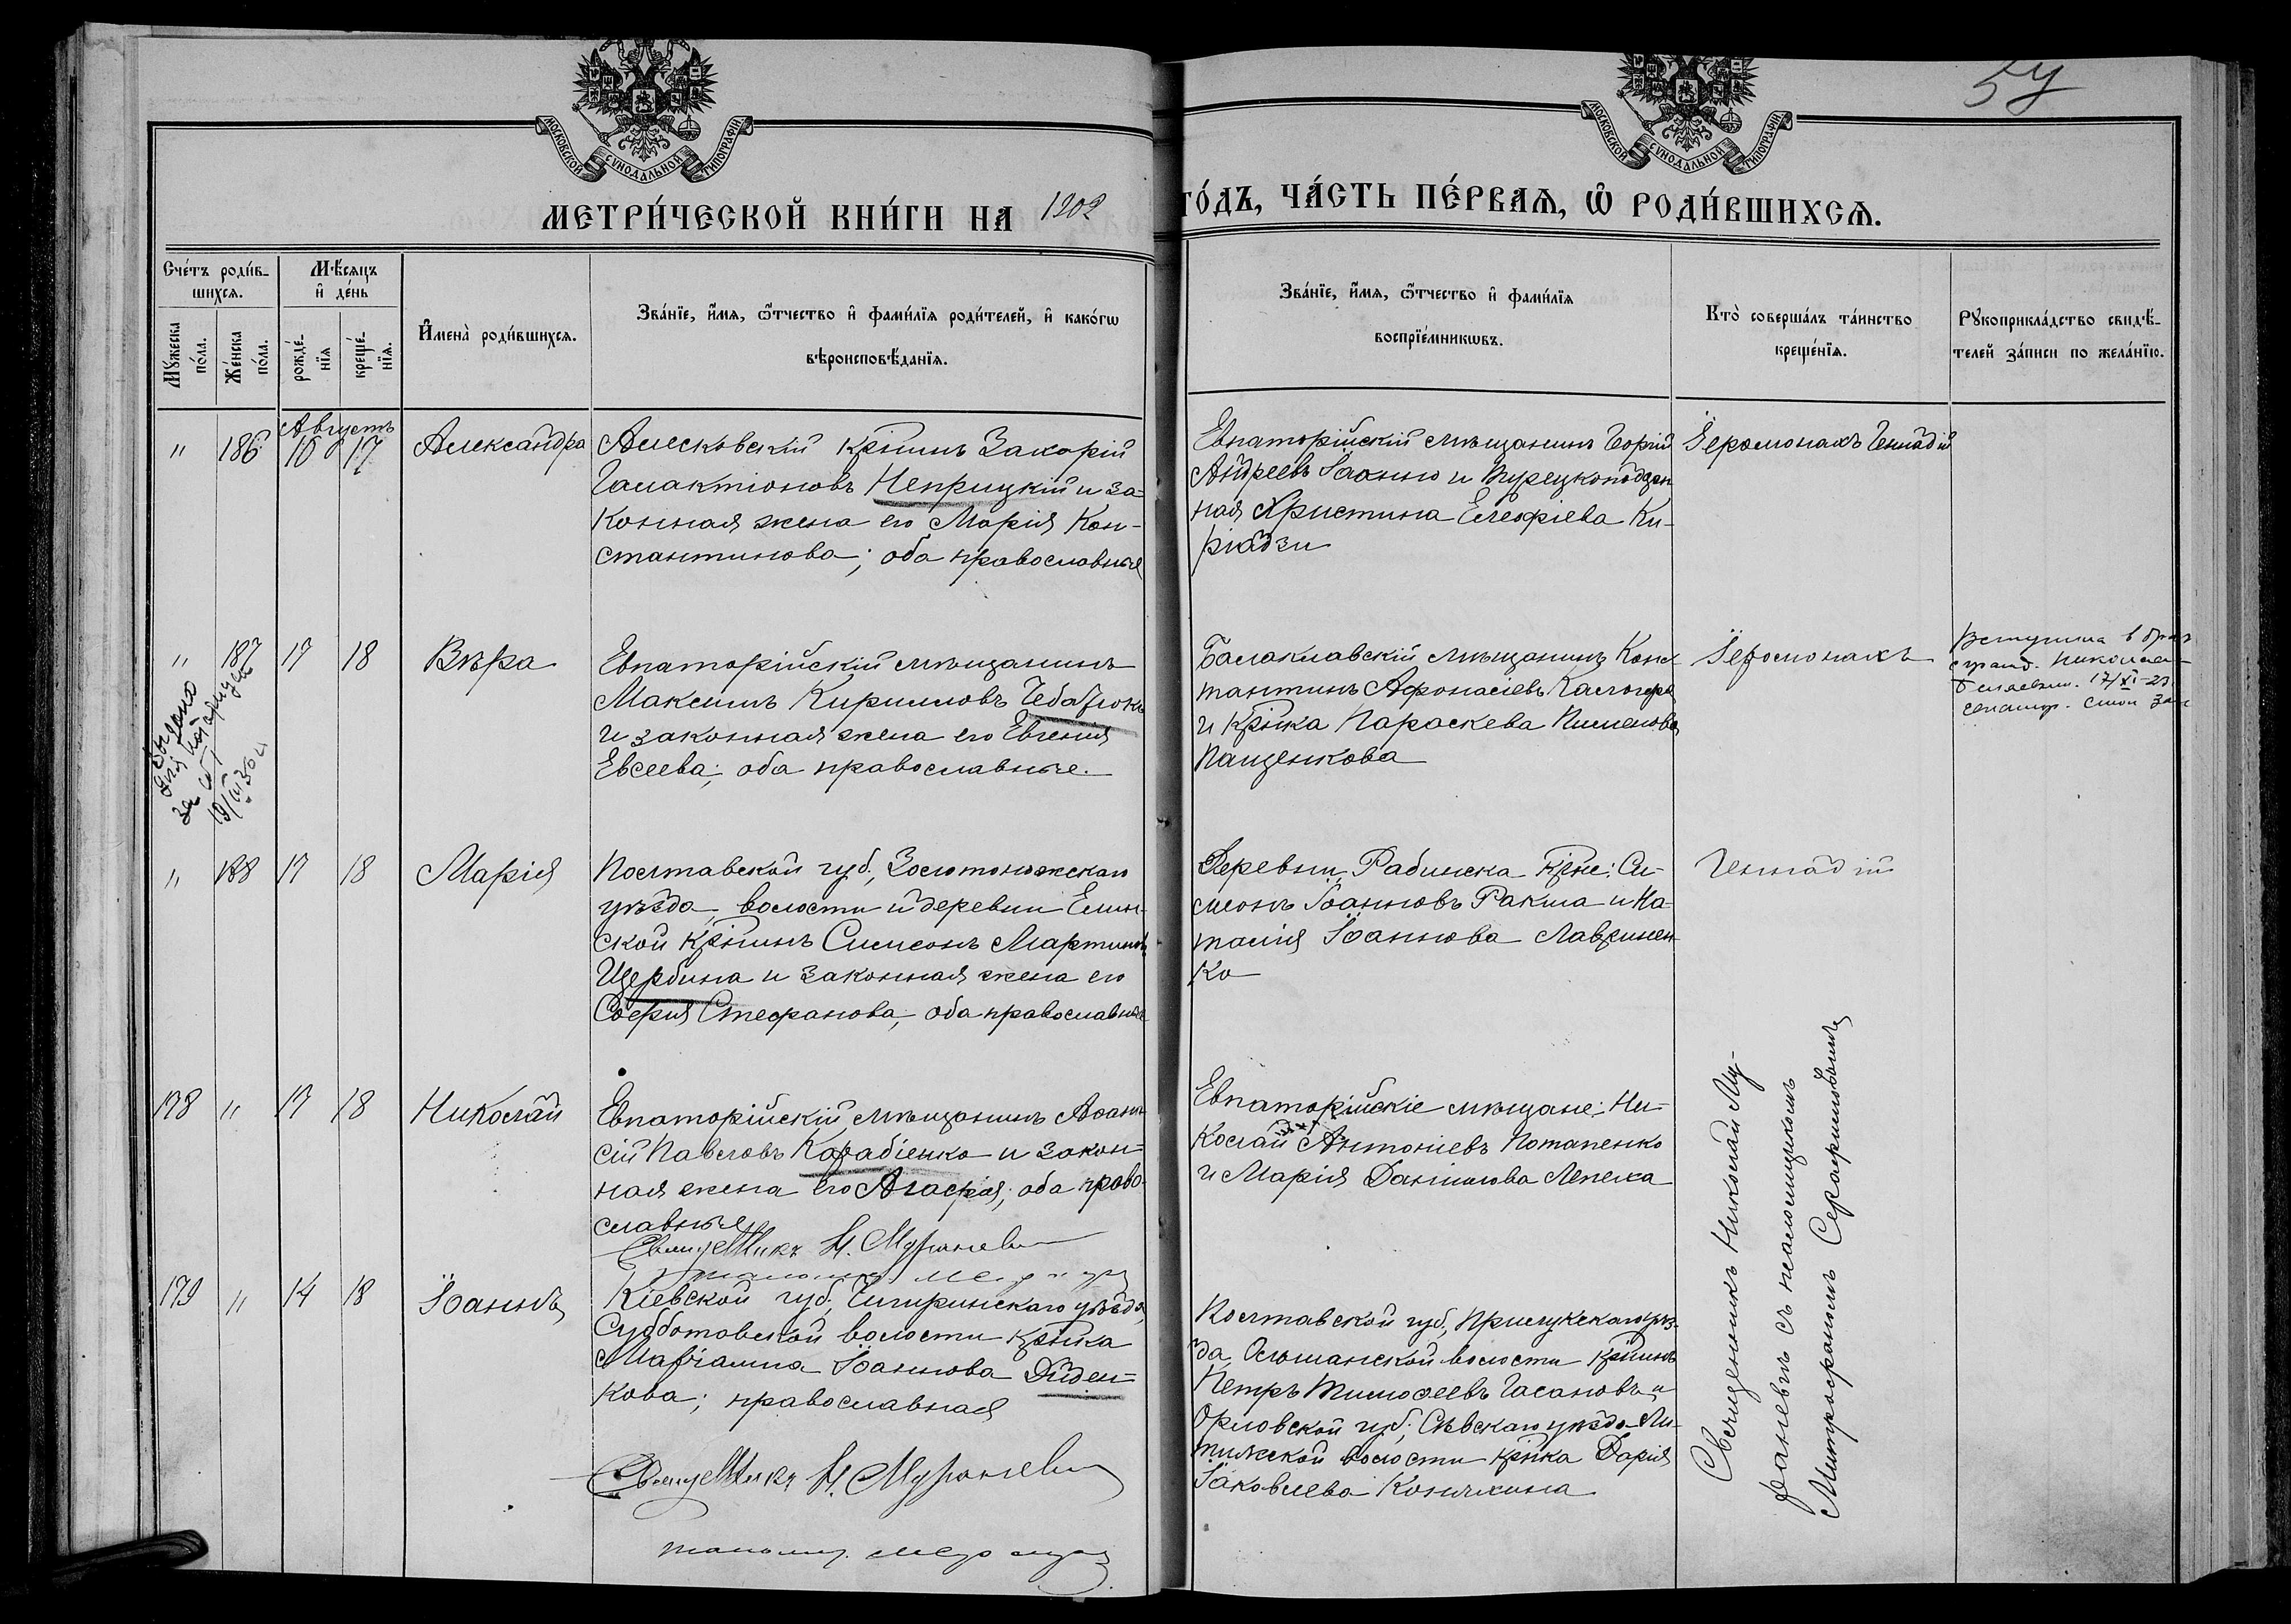 54
МОСКОВСКОЙ СѴНОДАЛЬНОЙ ТИПОГРАФІИ
МОСКОВСКОЙ СѴНОДАЛЬНОЙ ТИПОГРАФІИ
МЕТРИ́ЧЕСКОЙ КНИ́ГИ НА 1902
ГО́ДЪ, ЧА́СТЬ ПЕ́РВАѦ, Ѡ҆ РОДИ́ВШИХСѦ.
Сче́тъ роди́в-
шихсѧ.
Мꙋ́жеска по́ла.
Же́нска по́ла.
Мѣ́сѧцъ
и҆ де́нь
рожде́-
нїѧ
креще́-
нїѧ.
И҆мена̀ роди́вшихсѧ.
Зва́нїе, и҆́мѧ, ѻ҆́тчество и҆ фами́лїѧ роди́телей, и҆ како́гѡ
вѣроисповѣ́данїѧ.
Зва́нїе, и҆́мѧ, ѻ҆́тчество и҆ фами́лїѧ
воспрїе́мникѡвъ.
Кто̀ соверша́лъ та́инство
креще́нїѧ.
Рꙋкоприкла́дство свидѣ́-
телей за́писи по жела́нїю.
Августъ
" 186 10 17 Александра
Алесковскій кр̃нинъ Захарій
Галактіоновъ Неприцкій и за-
конная жена его Марія Кон-
стантинова; оба православные
Евпаторійскій мѣщанинъ Георгій
Андреевъ Іоанно и турецкоподдан
ная Христина Елефріева Ки-
ріадзи
Іеромонахъ Геннадій
" 187 17 18 Вѣра
Евпаторійскій мѣщанинъ
Максимъ Кирилловъ Чебатюкъ
и законная жена его Евгенія
Евсеева; оба православные.
Балаклавскій мѣщанинъ Конс
тантинъ Афонасіевъ Калогера
и кр̃нка Параскева Пименова
Пащенкова
Іеромонахъ
Вступила в брак
с гражд. Николаем
17/XI-23
Выдано
за №
" 188 17 18 Марія
Полтавской губ., Золотоножскаго
уѣзда, волости и деревни Елин-
ской кр̃нинъ Симеонъ Мартиновъ
Щербина и законная жена его
Софія Стефанова; оба православные
Деревни Рабинска кр̃не: Си-
меонъ Іоанновъ Ракша и На-
талія Іоаннова Лавринен-
ко
Геннадій
178 " 17 18 Николай
Евпаторійскій мѣщанинъ Аѳана
сій Павловъ Карабіенко и закон-
ная жена его Агафія; оба право-
славные
Священникъ Н. Мураневичъ
Евпаторійскіе мѣщане: Ни-
колай Антоніевъ Потапенко
и Марія Даніилова Лепеха
179 " 14 18 Іоаннъ
Кіевской губ., Чигиринскаго уѣзда,
Субботовской волости кр̃нка
Маріанна Іоаннова Диден-
кова; православная
Полтавской губ., Прилукскаго уѣз-
да, Ольшанской волости кр̃нинъ
Петръ Тимоѳеевъ Гасановъ и
Орловской губ., Сѣвскаго уѣзда Ли-
тижской волости кр̃нка Дарія
Іаковлева Конюхина
Священникъ Николай Му-
раневичъ съ псаломщикомъ
Митрофаномъ Серафимовымъ
Священникъ Н. Мураневичъ